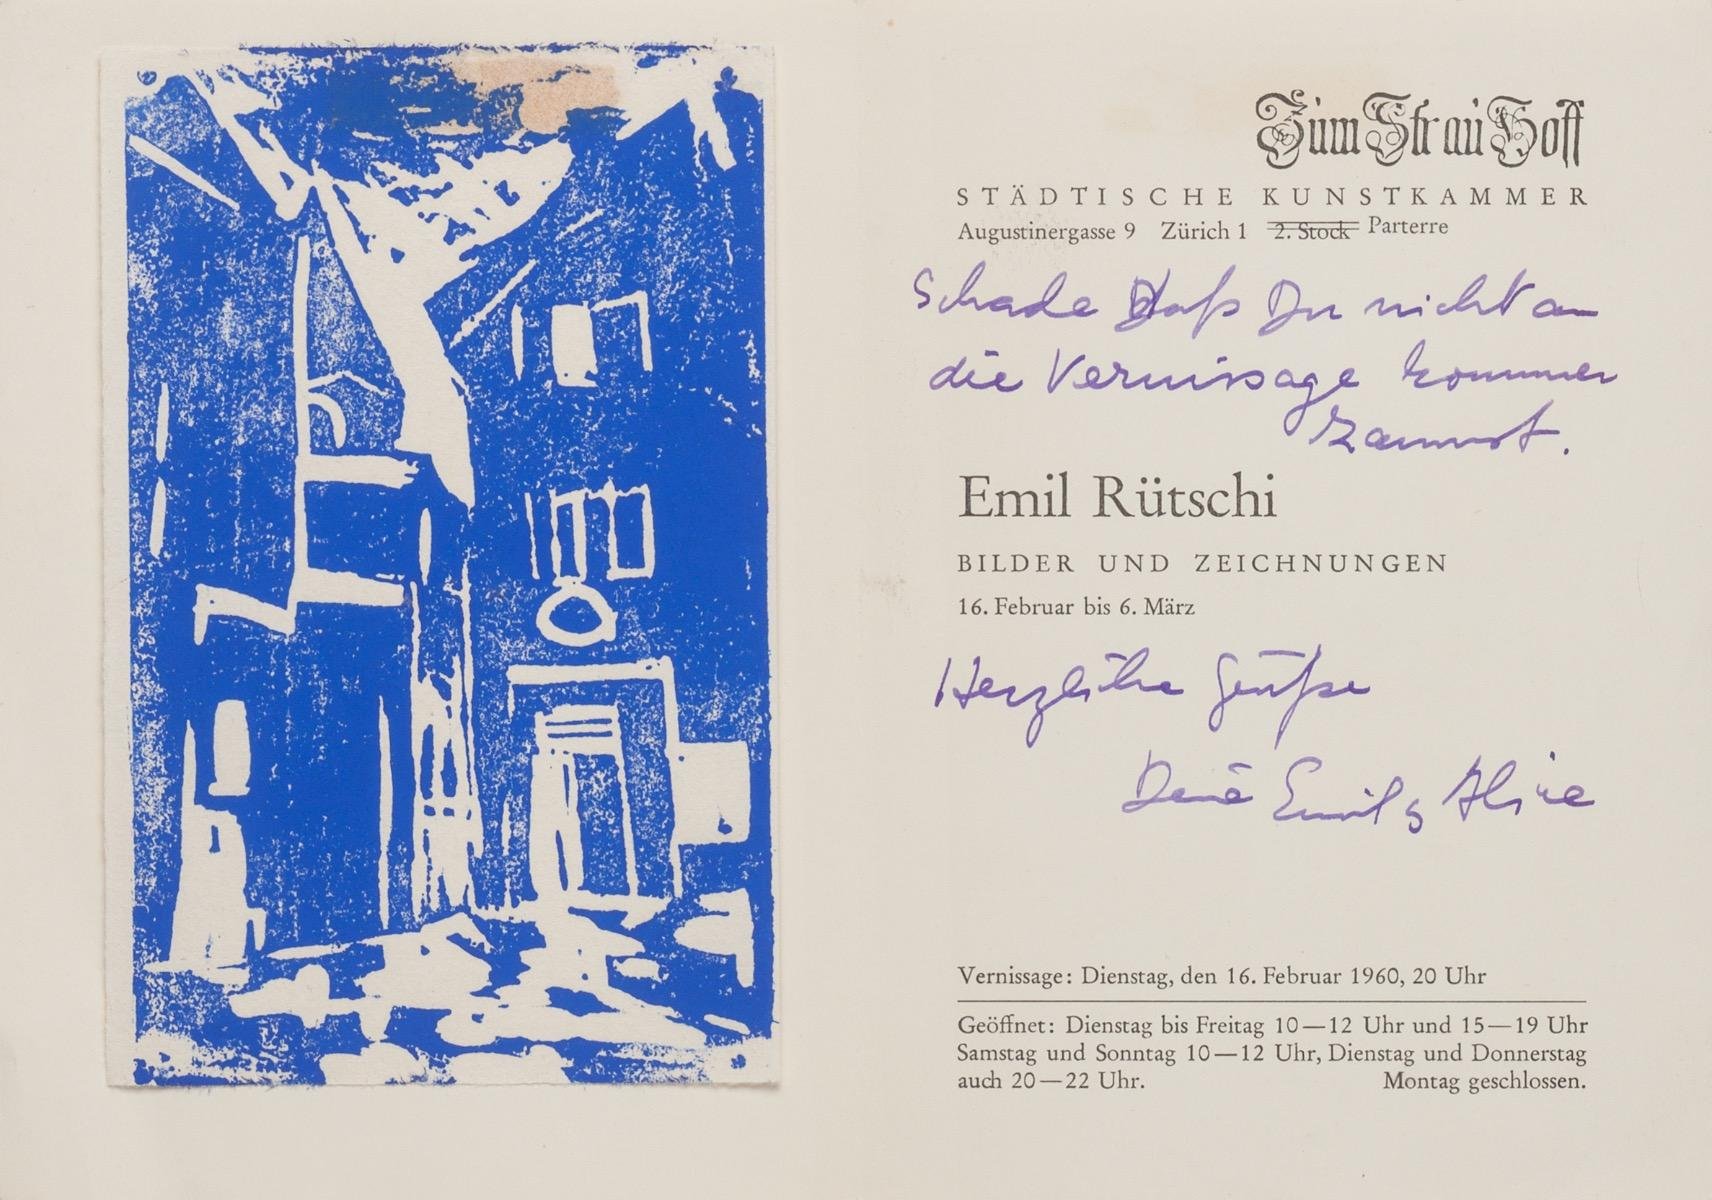 Zum Strau Hoff
STÄDTISCHE KUNSTKAMMER
Augustinergasse 9 Zürich 1 2. Stock Parterre
Schade Daß Du nicht an
die Vernissage kommen
kannst.
Emil Rütschi
BILDER UND ZEICHNUNGEN
16. Februar bis 6. März
Herzliche Grüße
Emil & Alice
Vernissage: Dienstag, den 16. Februar 1960, 20 Uhr
Geöffnet: Dienstag bis Freitag 10—12 Uhr und 15—19 Uhr
Samstag und Sonntag 10—12 Uhr, Dienstag und Donnerstag
auch 20—22 Uhr. Montag geschlossen.